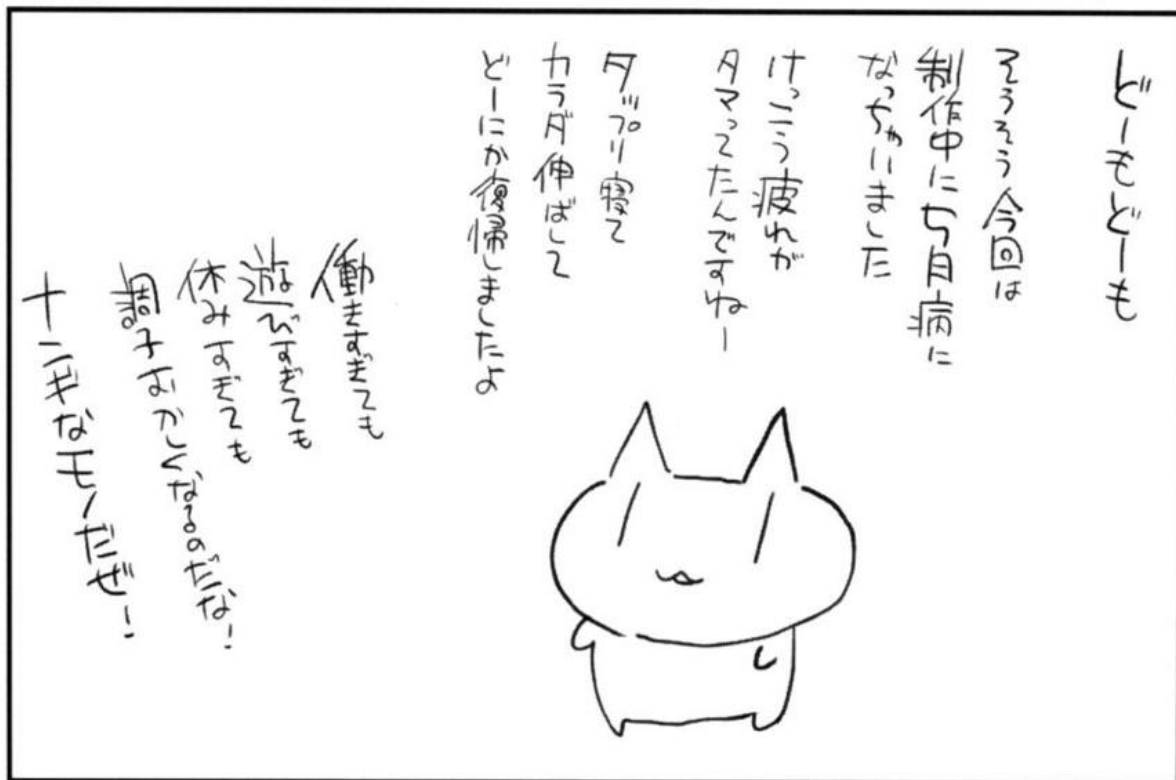 どーもどーも
そうそう今回は
制作中に5月病に
なっちゃいました
けっこう疲れが
タマってたんですねー
タップリ寝て
カラダ伸ばして
どーにか復帰しましたよ
働きすぎても
遊びすぎても
休みすぎても
調子おかしくなるのだな!
ナンギなモノだぜ!